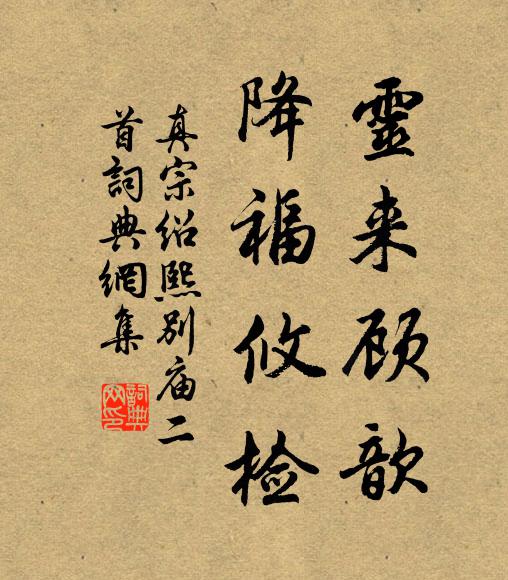 靈来顾歆
降福攸检
真宗绍熙别庙二
首詞典網集
詞典網印